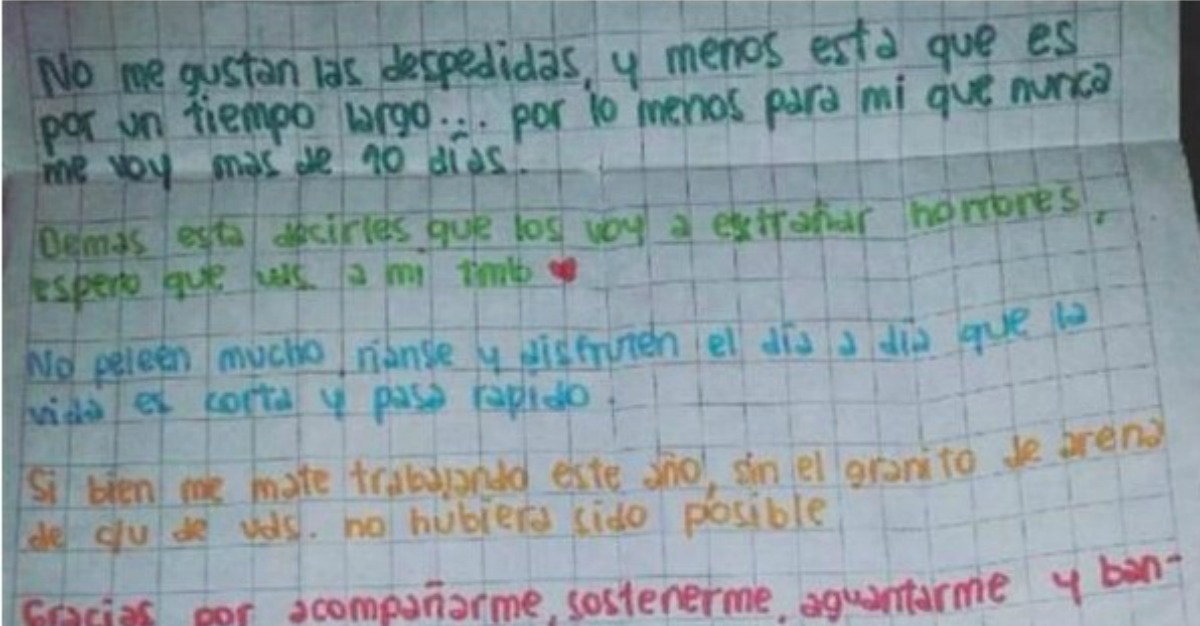 No me gustan las despedidas, y menos esta que es
por un tiempo largo... por lo menos para mi que nunca
me voy mas de 10 días.
Demas esta decirles que los voy a extrañar hombres,
espero que uds. a mi tmb ♥
No peleen mucho, rianse y disfruten el día a día que la
vida es corta y pasa rapido.
Si bien me mate trabajando este año, sin el granito de arena
de c/u de uds. no hubiera sido posible
Gracias por acompañarme, sostenerme, aguantarme y ban-